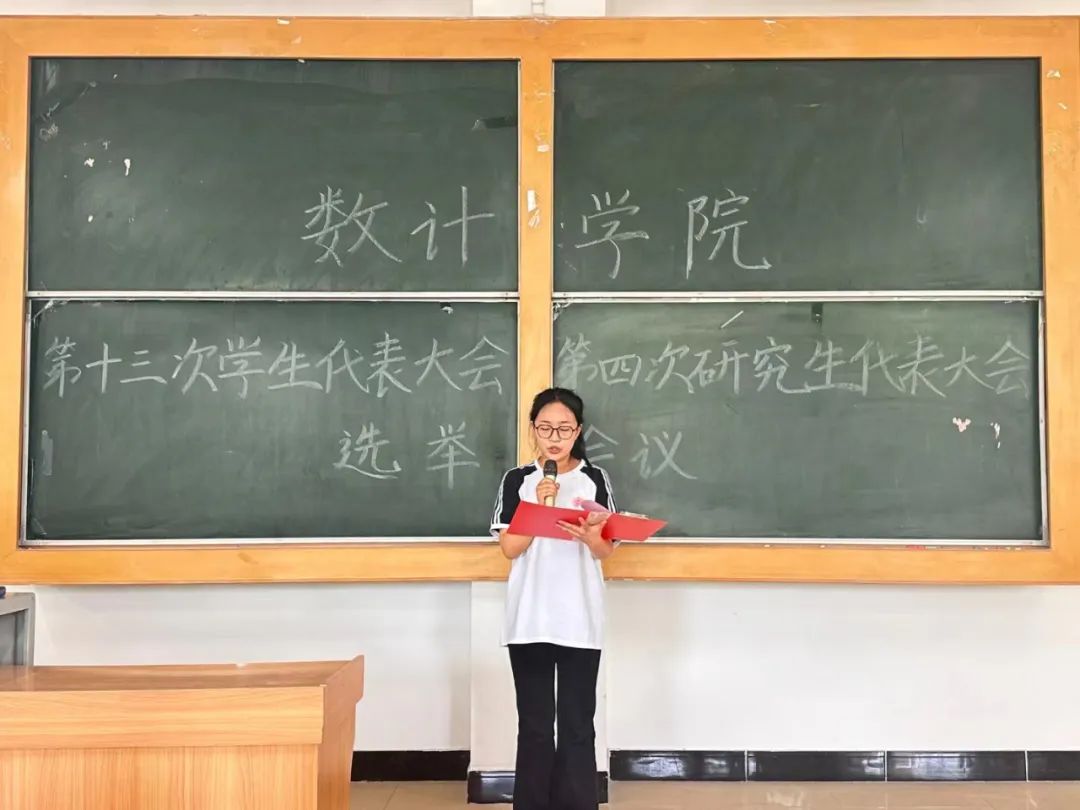 数计学院
第十三次学生代表大会 第四次研究生代表大会
选举会议